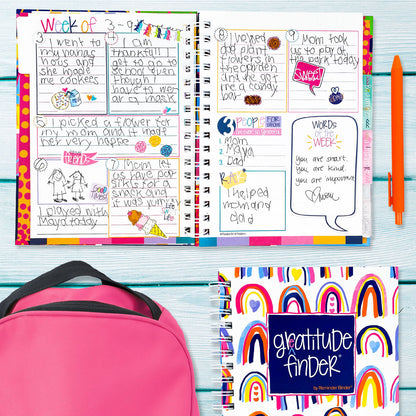 Week of 3-9
3 I went to
my nanas
hous and
she made
cookies
4 I am
thankfull I
get to go to
school even
though I
have to wer
a mask
5 I picked a flower for
my mom and it made
her very happy
friends
I played with
Maya today
7 Mom let
us have pop
sickls for a
snack and it
was yummy
8 I helped
dad plant
flowers in
the garden
and we got
me a candy
bar
9 Mom took
us to play at
the park today
sweet!
3 PEOPLE
1 Mom
2 Maya
3 Dad
I helped
mom and
dad
WORDS
of the
WEEK
you are smart.
you are kind.
you are important.
gratitude
finder
by Reminder Binder